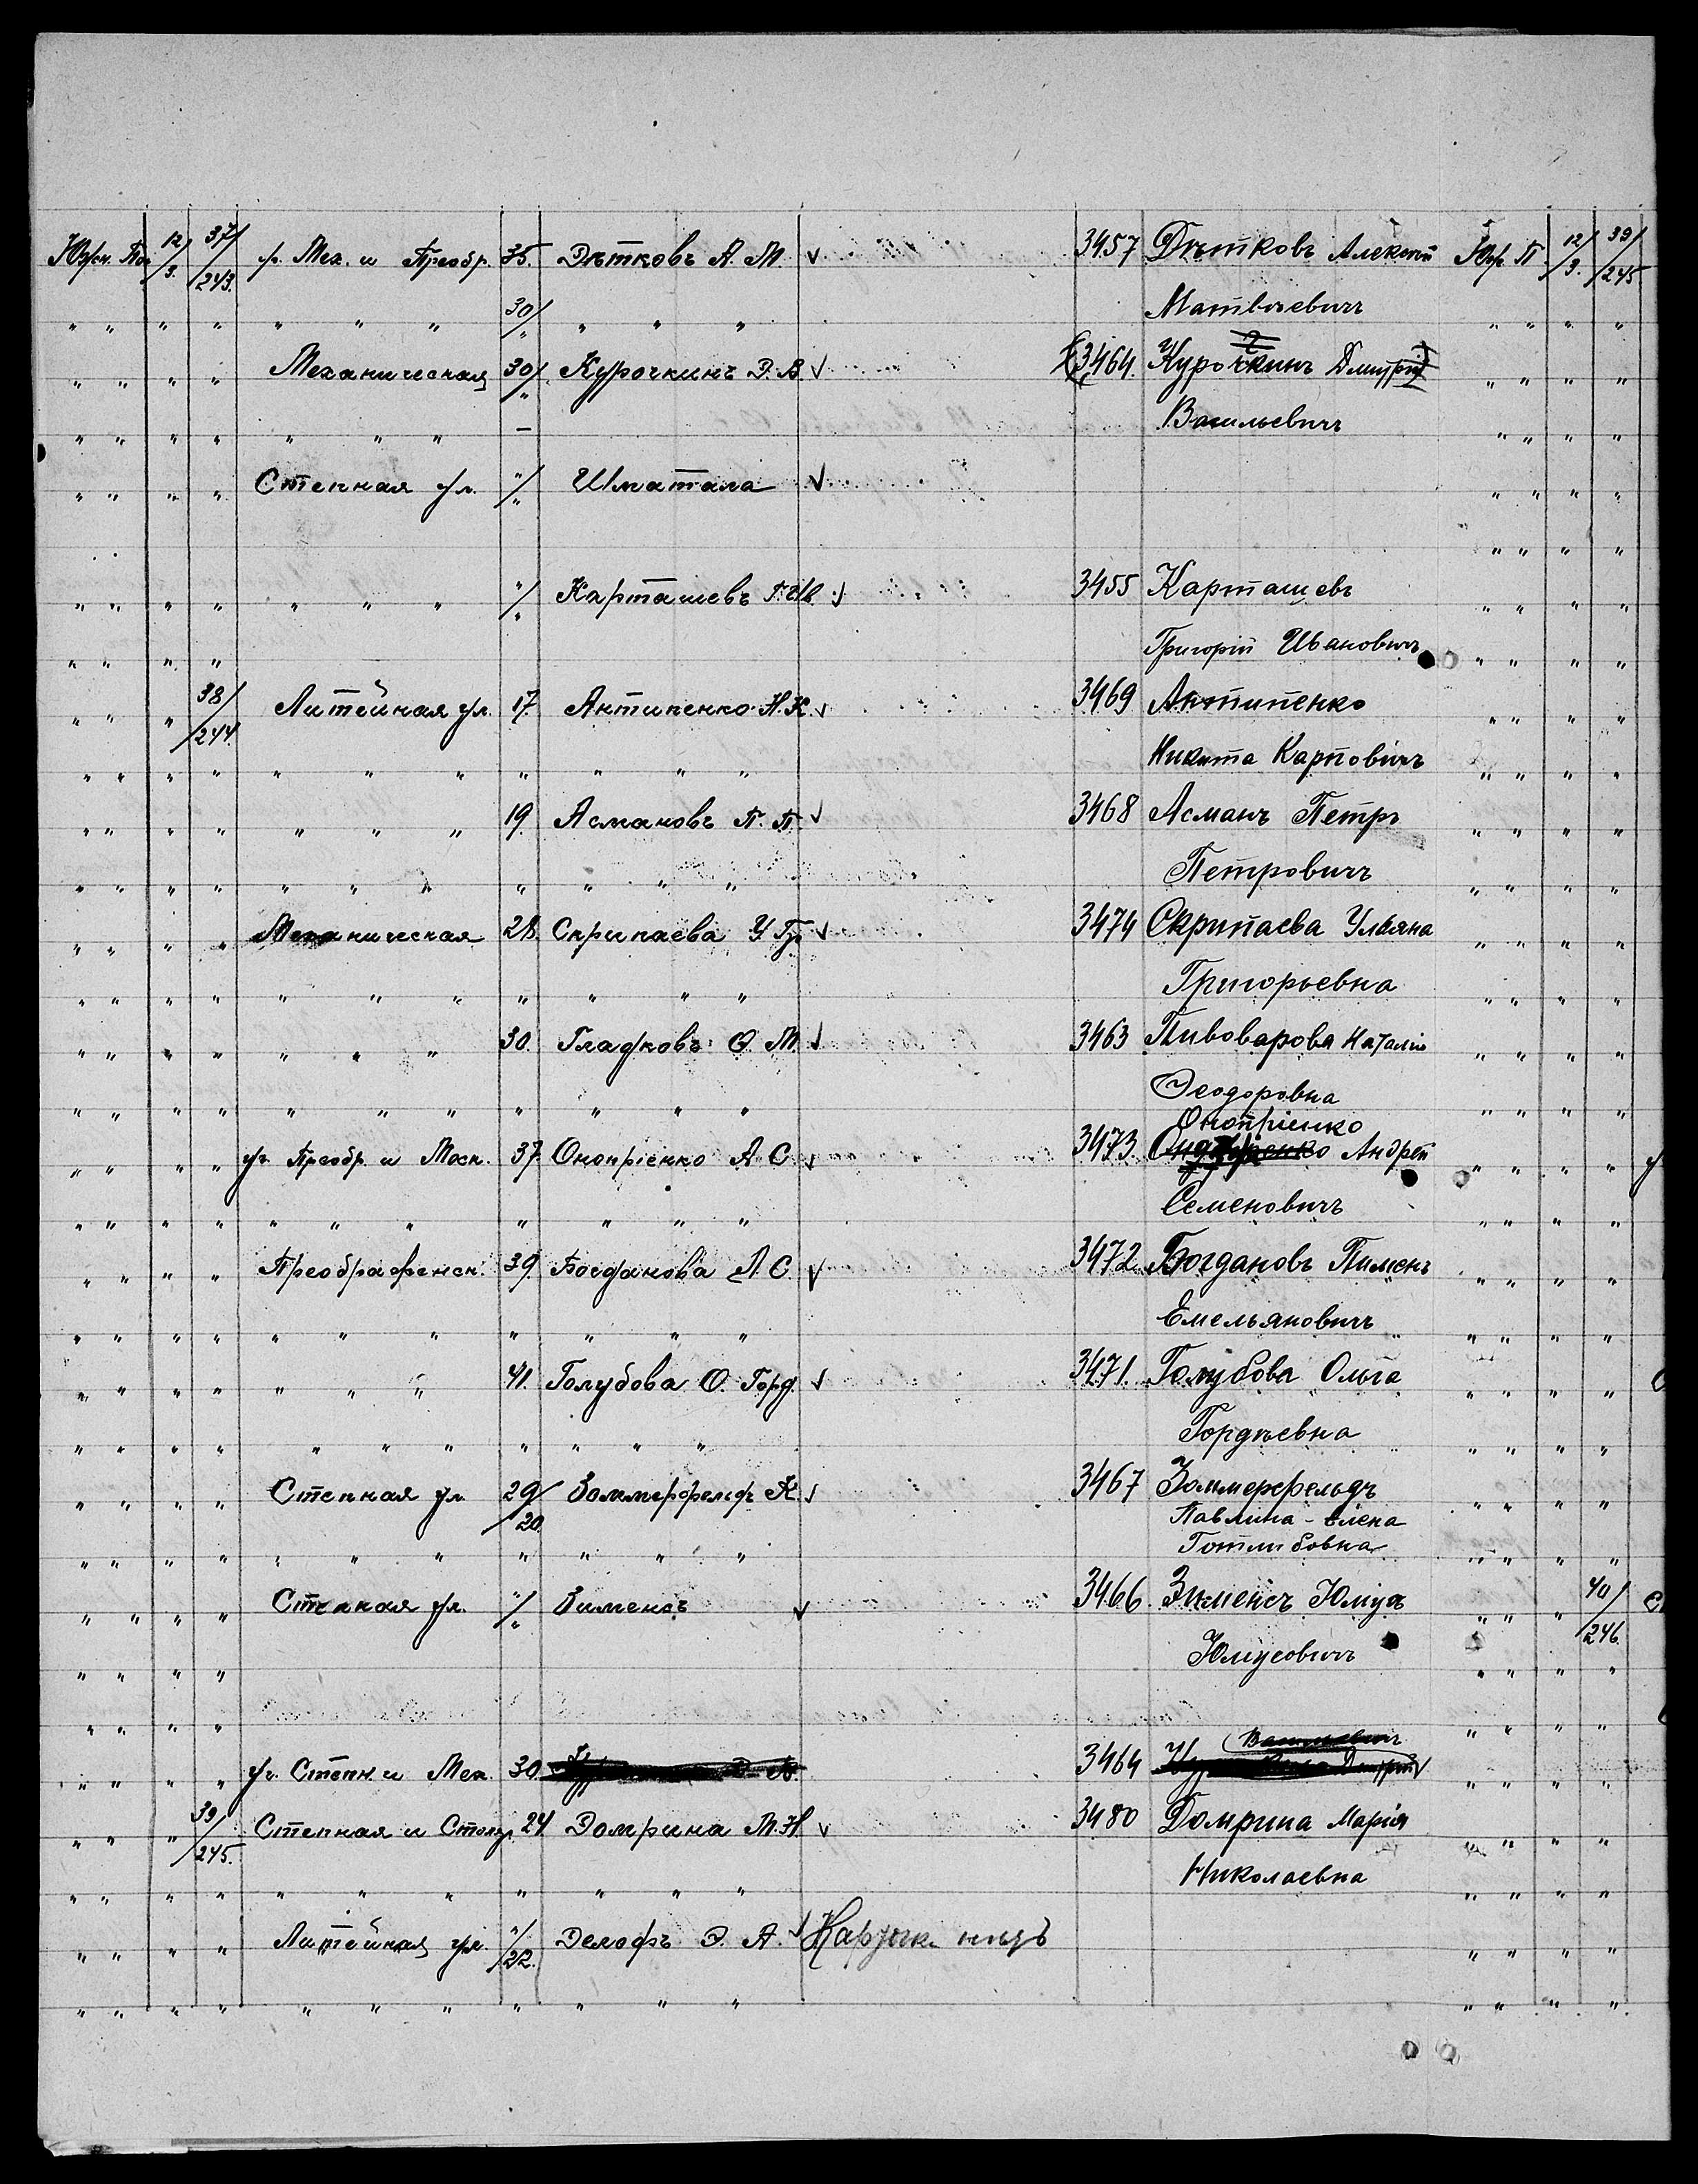 Южн. Пос. 12/3. 37/243. у. Мех. и Преобр. 35. Дѣтковъ А. М. ✓ 3457 Дѣтковъ Алексѣй Юж. П. 12/3. 39/245.
" " " " " " " 30/" " " " Матвѣевичъ " " " "
" " " " Механическая 30/" Курочкинъ Д. В. ✓ 3464. Курочкинъ Дмитрій " " " "
" " " " " " " – Васильевичъ " " " "
" " " " Степная ул. "/" Шматала ✓ " " " "
" " " "
" " " " " " " "/" Карташевъ Г. Ив. ✓ 3455 Карташевъ " " " "
" " " " Григорій Ивановичъ " " " "
" " " 38/244 Литейная ул. 17. Антипенко Н. К. ✓ 3469 Антипенко " " " "
" " " " " " " " " " " Никита Карповичъ " " " "
" " " " " " " 19. Асмановъ П. П. ✓ 3468 Асманъ Петръ " " " "
" " " " " " " " " " " Петровичъ " " " "
" " " " Механическая 28. Скрипаева У Гр. ✓ 3474 Скрипаева Ульяна " " " "
" " " " " " " " " " " Григорьевна " " " "
" " " " " " " 30. Гладковъ Ѳ. М. ✓ 3463 Пивоварова Наталія " " " "
" " " " " " " " " " " Ѳеодоровна " " " "
Онопріенко
" " " " уг. Преобр. и Моск. 37. Онопріенко А С. ✓ 3473. Андрей " " " "
" " " " " " " " " " " Семеновичъ " " " "
" " " " Преображенск. 39. Богданова Л. С. ✓ 3472 Богдановъ Пименъ " " " "
" " " " " " " " " " " Емельяновичъ " " " "
" " " " " " " 41. Голубова О. Горд. ✓ 3471. Голубова Ольга " " " "
" " " " " " " " " " " Гордѣевна " " " "
" " " " Степная ул. 29/20 Зоммерфельдъ К. ✓ 3467 Зоммерфельдъ " " " "
Павлина - Елена
" " " " " " " " " " " Готлибовна " " " "
" " " " Степная ул. "/" Зименсъ ✓ 3466. Зименсъ Юліусъ " " " 40/246.
" " " " Юліусовичъ " " " "
" " " " Васильевичъ " " " "
" " " " уг. Степн. и Мех. 30. 3464 Дмитрій ✓ " " " "
" " " 39/245. Степная и Столяр. 24 Домрина М. Н. ✓ 3480 Домрина Марія " " " "
" " " " " " " " " " " Николаевна " " " "
" " " " Литейная ул. "/22. Делофъ Э. А. ✓ " " " "
" " " " " " " " " " " " " " "